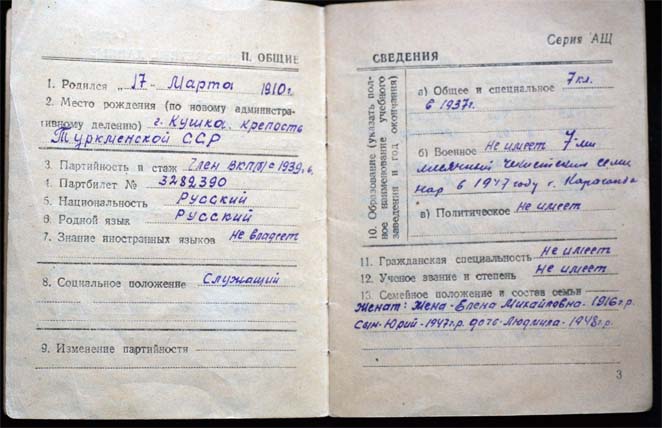 II. ОБЩИЕ
1. Родился „17" Марта 1910г.
2. Место рождения (по новому администра-
тивному делению) г. Кушка. крепость
Туркменской ССР
3. Партийность и стаж Член ВКП/б/ с 1939г.
4. Партбилет № 3282390
5. Национальность Русский
6. Родной язык Русский
7. Знание иностранных языков не владеет
8. Социальное положение Служащий
9. Изменение партийности
Серия АЩ
СВЕДЕНИЯ
10. Образование (указать пол-
ное наименование учебного
заведения и год окончания)
а) Общее и специальное 7 кл.
в 1937г.
б) Военное не имеет 7-ми
месячный чекистский семи
нар в 1947 году г. Караганда
в) Политическое не имеет
11. Гражданская специальность не имеет
12. Ученое звание и степень не имеет
13. Семейное положение и состав семьи
Женат: Жена - Елена Михайловна - 1916г.р.
Сын - Юрий - 1947г.р. дочь - Людмила - 1948г.р.
3